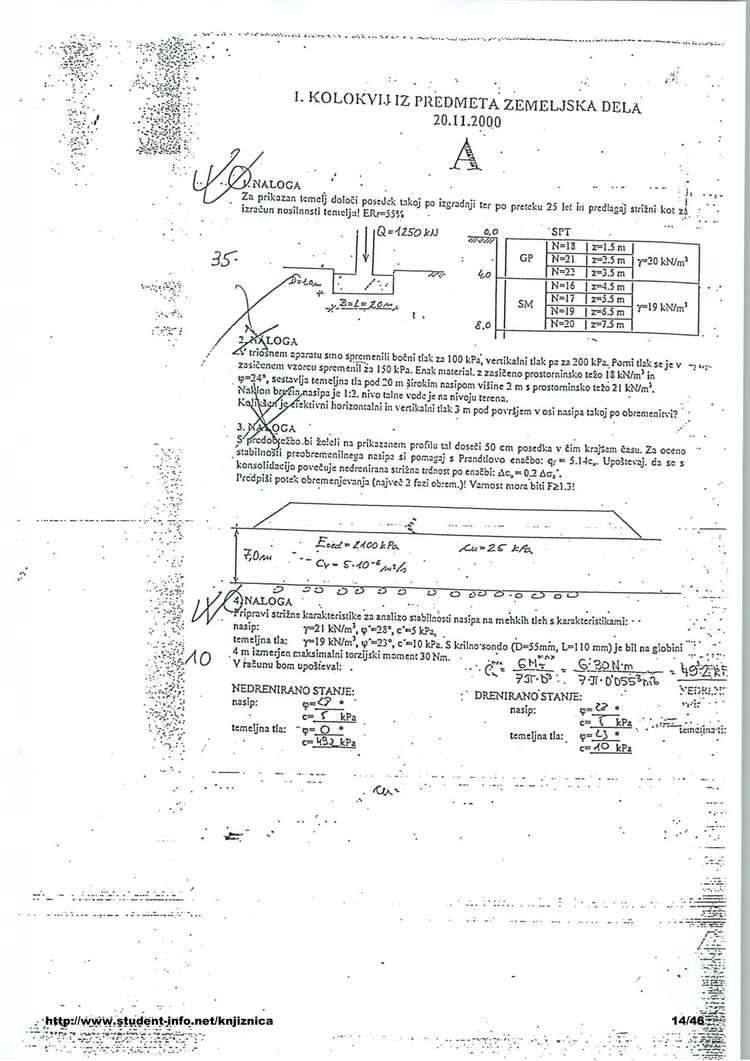 1. KOLOKVIJ IZ PREDMETA ZEMELJSKA DELA
20.11.2000
A
1. NALOGA
Za prikazan temelj določi posedek takoj po izgradnji ter po preteku 25 let in predlagaj strižni kot za
izračun nosilnosti temelja! ERr=55%
35-
Q=1250 kN
D=1,0m
B=L=2,0m
0,0
4,0
8,0
SPT
GP
N=18 z=1.5 m
N=21 z=2.5 m
N=22 z=3.5 m
γ=20 kN/m³
SM
N=16 z=4.5 m
N=17 z=5.5 m
N=19 z=6.5 m
N=20 z=7.5 m
γ=19 kN/m³
2. NALOGA
V triosnem aparatu smo spremenili bočni tlak za 100 kPa, vertikalni tlak pa za 200 kPa. Porni tlak se je v
zasičenem vzorcu spremenil za 150 kPa. Enak material, z zasičeno prostorninsko težo 18 kN/m³ in
φ=24°, sestavlja temeljna tla pod 20 m širokim nasipom višine 2 m s prostorninsko težo 21 kN/m³.
Naklon brežin nasipa je 1:2, nivo talne vode je na nivoju terena.
Kolikšen je efektivni horizontalni in vertikalni tlak 3 m pod površjem v osi nasipa takoj po obremenitvi?
3. NALOGA
S predobtežbo bi želeli na prikazanem profilu tal doseči 50 cm posedka v čim krajšem času. Za oceno
stabilnosti preobremenilnega nasipa si pomagaj s Prandtlovo enačbo: qf = 5.14cu. Upoštevaj, da se s
konsolidacijo povečuje nedrenirana strižna trdnost po enačbi: Δcu = 0.2 Δσz'.
Predpiši potek obremenjevanja (največ 2 fazi obrem.)! Varnost mora biti F≥1.3!
7,0m
Eoed = 2100 kPa
cv = 5·10⁻⁶ m²/s
cu = 25 kPa
4. NALOGA
Pripravi strižne karakteristike za analizo stabilnosti nasipa na mehkih tleh s karakteristikami:
nasip: γ=21 kN/m³, φ'=28°, c'=5 kPa,
temeljna tla: γ=19 kN/m³, φ'=23°, c'=10 kPa. S krilno sondo (D=55mm, L=110 mm) je bil na globini
4 m izmerjen maksimalni torzijski moment 30 Nm.
V računu bom upošteval:
10
NEDRENIRANO STANJE:
nasip: φ= 28 °
c= 5 kPa
temeljna tla: φ= 0 °
c= 49,2 kPa
DRENIRANO STANJE:
nasip: φ= 28 °
c= 5 kPa
temeljna tla: φ= 23 °
c= 10 kPa
cu=
http://www.student-info.net/knjiznica
14/46